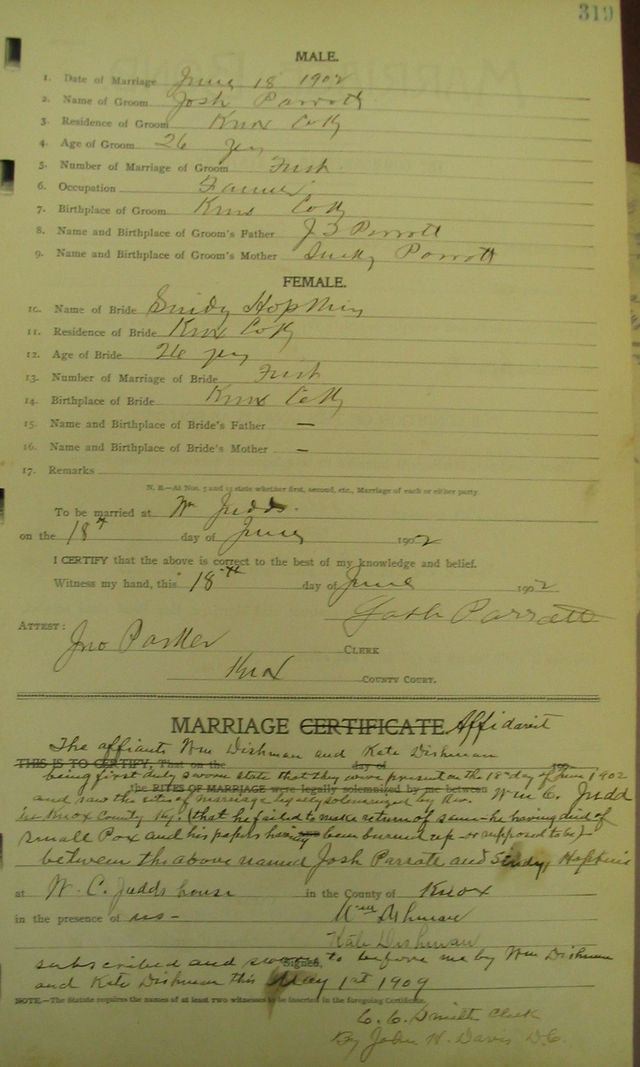 319
MALE.
1. Date of Marriage June 18 1902
2. Name of Groom Josh Parrott
3. Residence of Groom Knox Co Ky
4. Age of Groom 26 yrs
5. Number of Marriage of Groom First
6. Occupation Farmer
7. Birthplace of Groom Knox Co Ky
8. Name and Birthplace of Groom's Father J Parrott
9. Name and Birthplace of Groom's Mother Parrott
FEMALE.
10. Name of Bride Hopkins
11. Residence of Bride Knox Co Ky
12. Age of Bride 26 yrs
13. Number of Marriage of Bride First
14. Birthplace of Bride Knox Co Ky
15. Name and Birthplace of Bride's Father —
16. Name and Birthplace of Bride's Mother —
17. Remarks
N. B.—At Nos. 5 and 13 state whether first, second, etc., Marriage of each or either party
To be married at Wm Judds.
on the 18th day of June 1902
I CERTIFY that the above is correct to the best of my knowledge and belief.
Witness my hand, this 18th day of June 1902
Josh Parratt
ATTEST:
Jno Parker CLERK
Knox COUNTY COURT.
MARRIAGE CERTIFICATE. Affidavit
The affiants Wm Dishman and Kate Dishman
THIS IS TO CERTIFY, That on the day of 190
being first duly sworn state that they were present on the 18th day of June 1902
the RITES OF MARRIAGE were legally solemnized by me between
and saw the rites of marriage legally solemnized by Rev. Wm C. Judd
in Knox County Ky. (that he failed to make return of same—he having died of
Small Pox and his papers having been burned up or supposed to be)
between the above named Josh Parrate and Sindy Hopkins
at W. C. Judds house in the County of Knox
in the presence of us—
Wm Dishman
Kate Dishman
Signed,
subscribed and sworn to before me by Wm Dishman
and Kate Dishman this May 1st 1909
NOTE.—The Statute requires the names of at least two witnesses to be inserted in the foregoing Certificate.
C. C. Smith Clerk
By John W. Davis D.C.